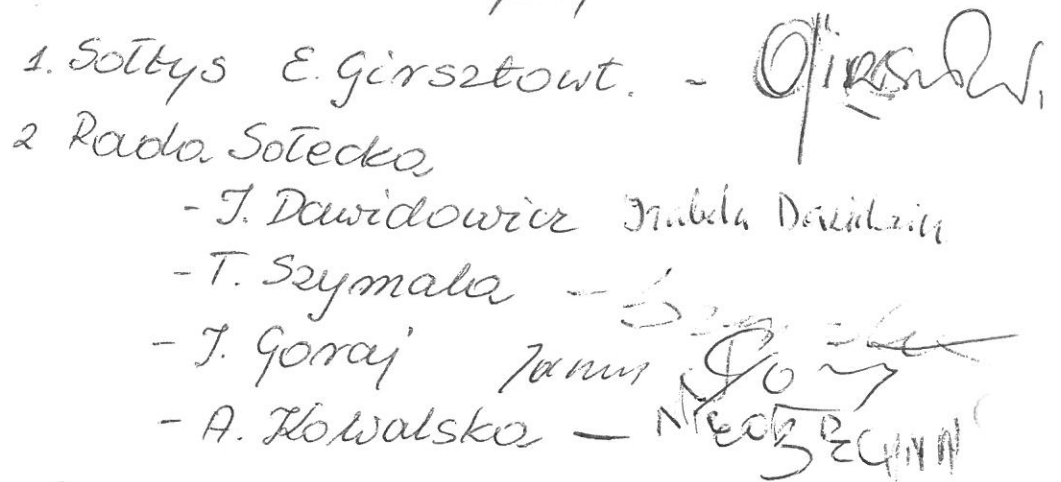 1. Sołtys E. Girsztowt. -
2 Rada Sołecka
- I. Dawidowicz Izabela
- T. Szymala -
- J. Goraj Janusz
- A. Kowalska - NIEOBECNA